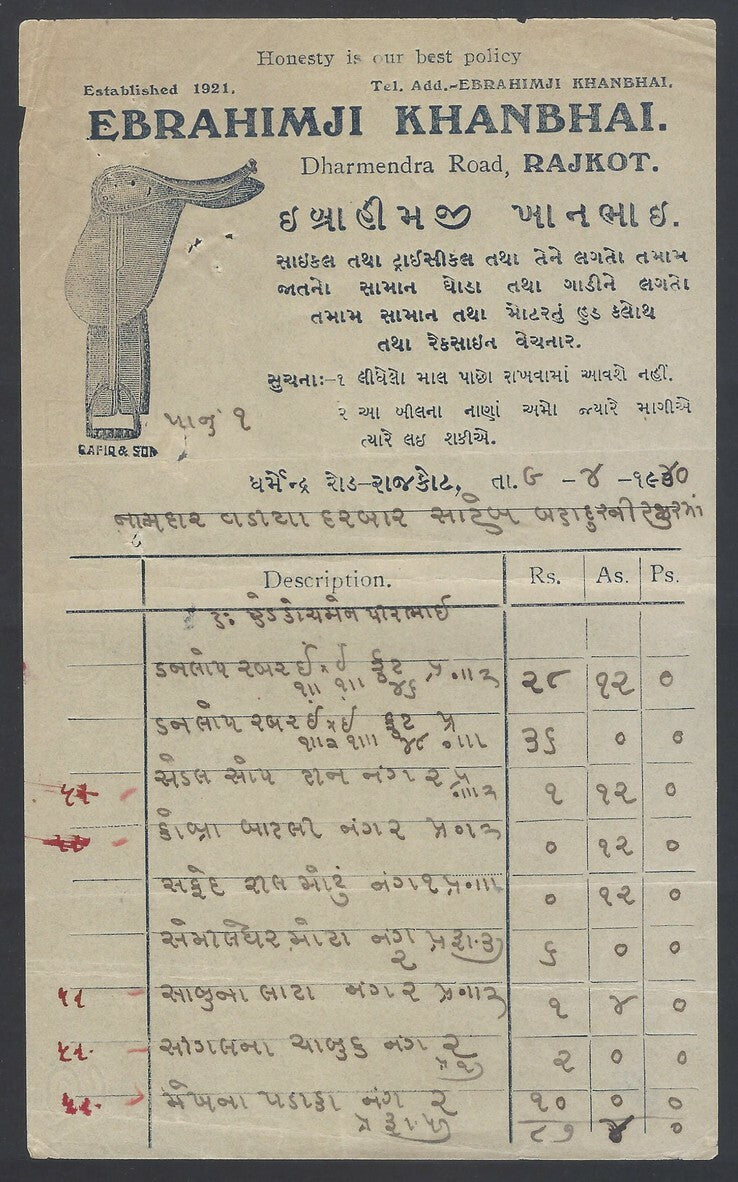 Honesty is our best policy
Established 1921. Tel. Add.-EBRAHIMJI KHANBHAI.
EBRAHIMJI KHANBHAI.
Dharmendra Road, RAJKOT.
ઇબ્રાહીમજી ખાનભાઇ.
સાઇકલ તથા ટ્રાઈસીકલ તથા તેને લગતો તમામ
જાતનો સામાન ઘોડા તથા ગાડીને લગતો
તમામ સામાન તથા મોટરનું હુડ કલોથ
તથા રેકસાઇન વેચનાર.
સુચનાઃ-૧ લીધેલો માલ પાછો રાખવામાં આવશે નહીં.
૨ આ બીલના નાણાં અમો જ્યારે માગીએ
ત્યારે લઇ શકીએ.
RAFIQ & SON
પાનુ ૧
ધર્મેન્દ્ર રોડ-રાજકોટ, તા. ૯ -૪ -૧૯૪૦
નામદાર વડીયા દરબાર સાહેબ બહાદુરની હજુરમાં
Description. Rs. As. Ps.
ડનલોપ રબર ઈ × ઈ ફુટ પ્ર ૨૮ ૧૨ ૦
૧ાા ૧ાા ૪૬
ડનલોપ રબર ઈ × ઈ ફુટ પ્ર ૩૬ ૦ ૦
૪૮
સેડલ સોપ ટીન નંગ ૨ પ્ર ૧ ૧૨ ૦
નંગ ૨ ૦ ૧૨ ૦
સફેદ મોટું નંગ ૧ ૦ ૧૨ ૦
મોટા નંગ ૨ ૬ ૦ ૦
સાબુના લાટા નંગ ૨ ૧ ૪ ૦
ચાબુક નંગ ૨ ૨ ૦ ૦
નંગ ૨ ૧૦ ૦ ૦
૮૭ ૪ ૦